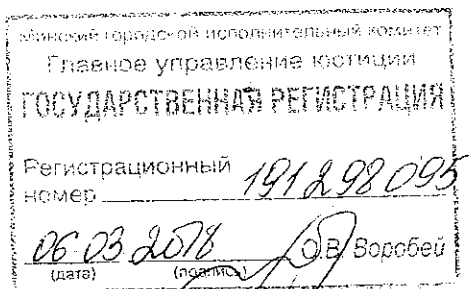 Минский городской исполнительный комитет
Главное управление юстиции
ГОСУДАРСТВЕННАЯ РЕГИСТРАЦИЯ
Регистрационный
номер 191298095
06 03 2018 О.В. Воробей
(дата) (подпись)